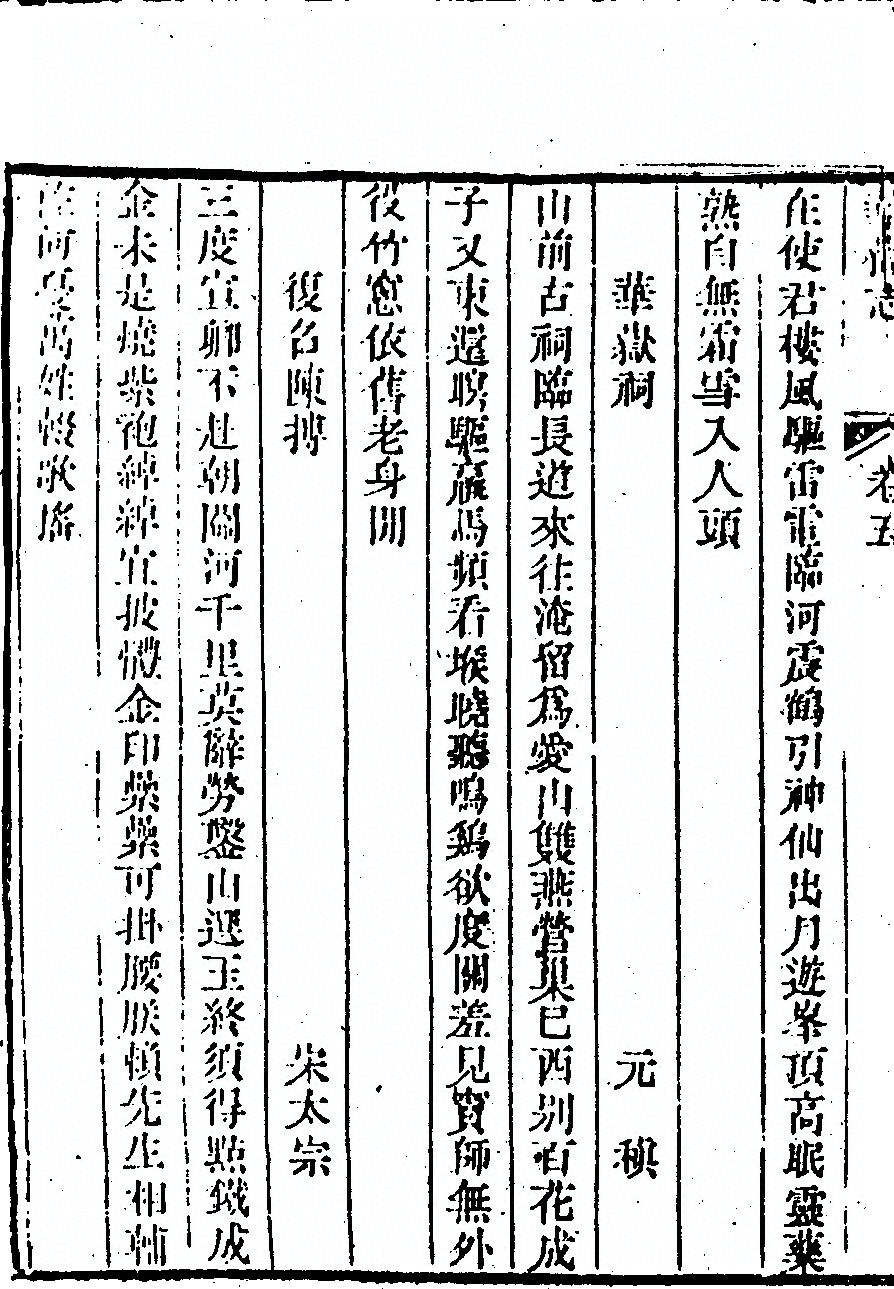 志 卷五
在使君樓風驅雷電臨河震鶴引神仙出月遊峯頂高眠靈藥
熟自無霜雪入人頭
華嶽祠 元稹
山前古祠臨長道來往淹留爲愛山雙燕營巢已西别百花成
子又東還暝驅羸馬頻看堠曉聽鳴鷄欲度關羞見竇師無外
役竹窻依舊老身閒
復召陳摶 宋太宗
三度宣卿不赴朝關河千里莫辭勞鑿山選玉終須得點鐵成
金未是燒紫袍綽綽宜披體金印纍纍可掛腰朕賴先生相輔
佐何憂萬姓輟歌謠